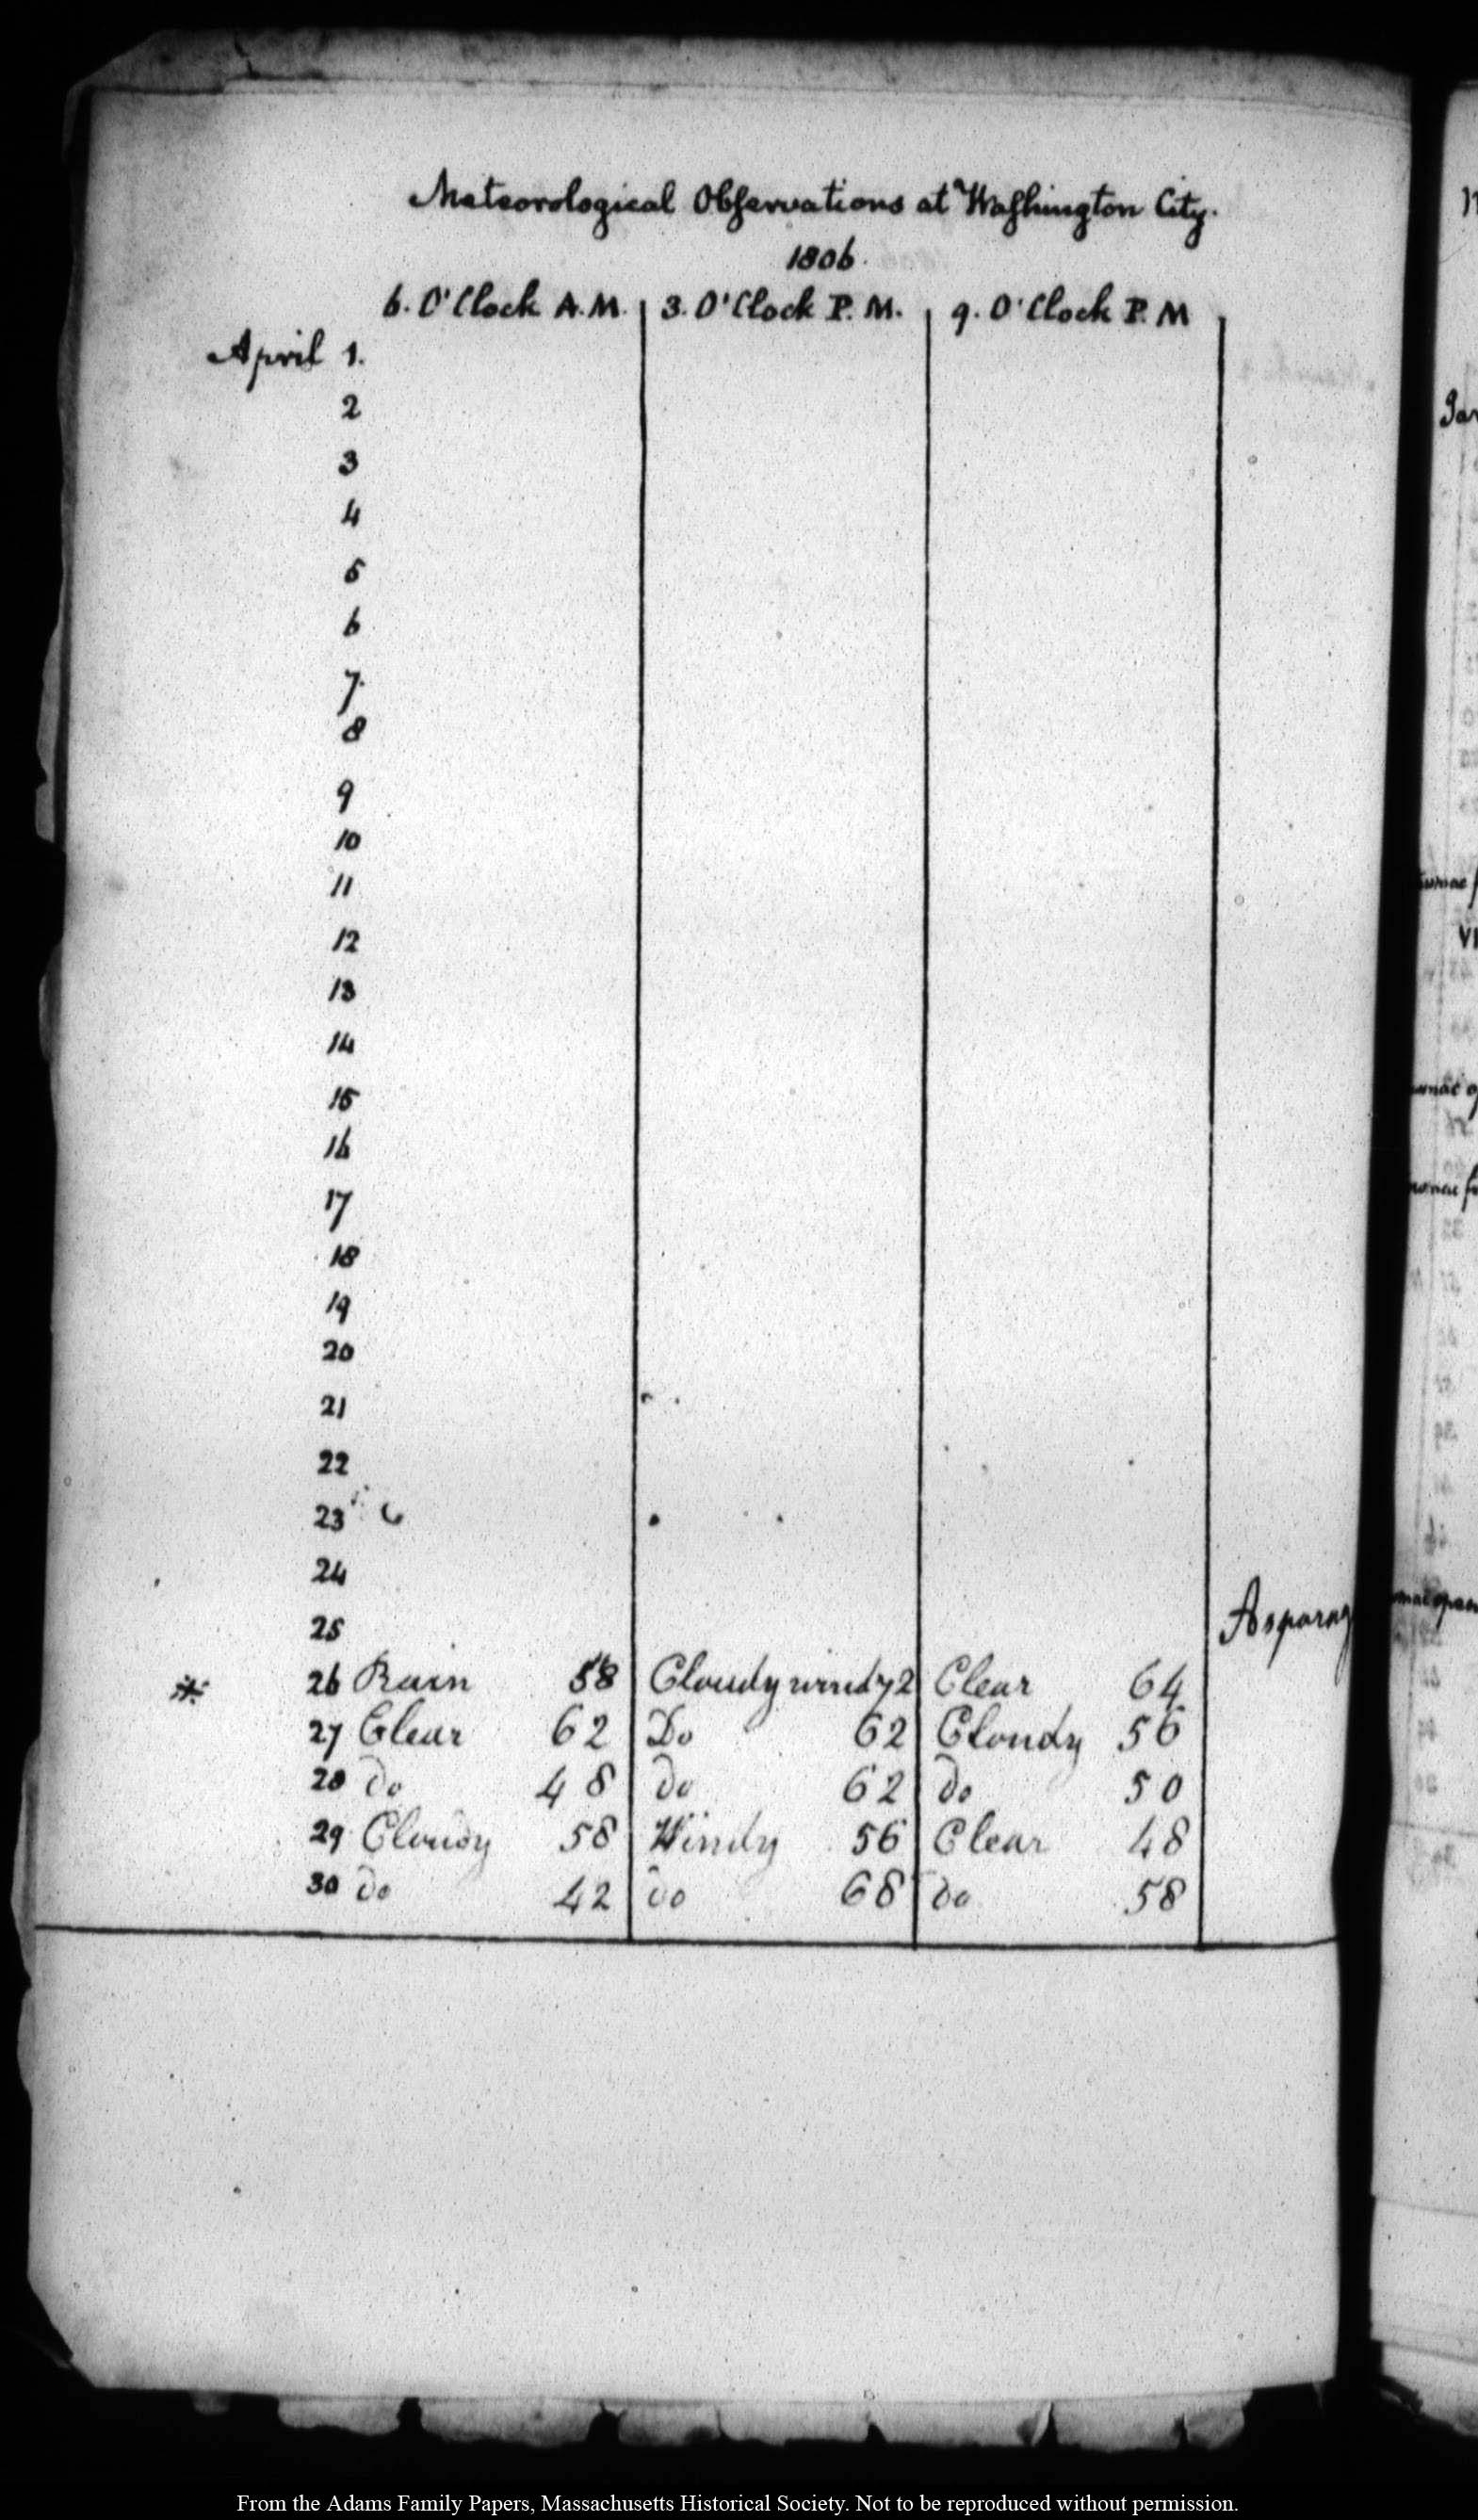 Meteorological Observations at Washington City.
1806.
6. O'Clock A.M. 3. O'Clock P.M. 9. O'Clock P.M
April 1.
2
3
4
5
6
7.
8
9
10
11
12
13
14
15
16
17
18
19
20
21
22
23
24
25 Asparag
* 26 Rain 58 Cloudy windy 72 Clear 64
27 Clear 62 Do 62 Cloudy 56
28 do 48 do 62 do 50
29 Cloudy 58 Windy 56 Clear 48
30 do 42 do 68 do 58
From the Adams Family Papers, Massachusetts Historical Society. Not to be reproduced without permission.